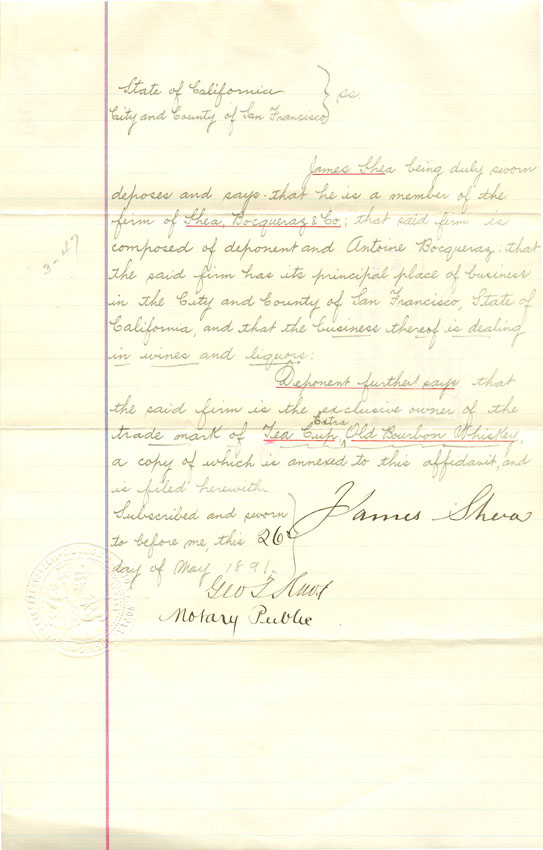 State of California } ss.
City and County of San Francisco
James Shea being duly sworn
deposes and says that he is a member of the
firm of Shea, Bocqueraz & Co; that said firm is
composed of deponent and Antoine Bocqueraz: that
the said firm has its principal place of business
in the City and County of San Francisco, State of
California, and that the business thereof is dealing
in wines and liquors:
Deponent further says that
the said firm is the exclusive owner of the
Extra
trade mark of Tea Cup ^ Old Bourbon Whiskey,
a copy of which is annexed to this affidavit, and
is filed herewith.
Subscribed and sworn
to before me, this 26th
day of May 1891.
James Shea
Geo T Knox
Notary Public
3-47